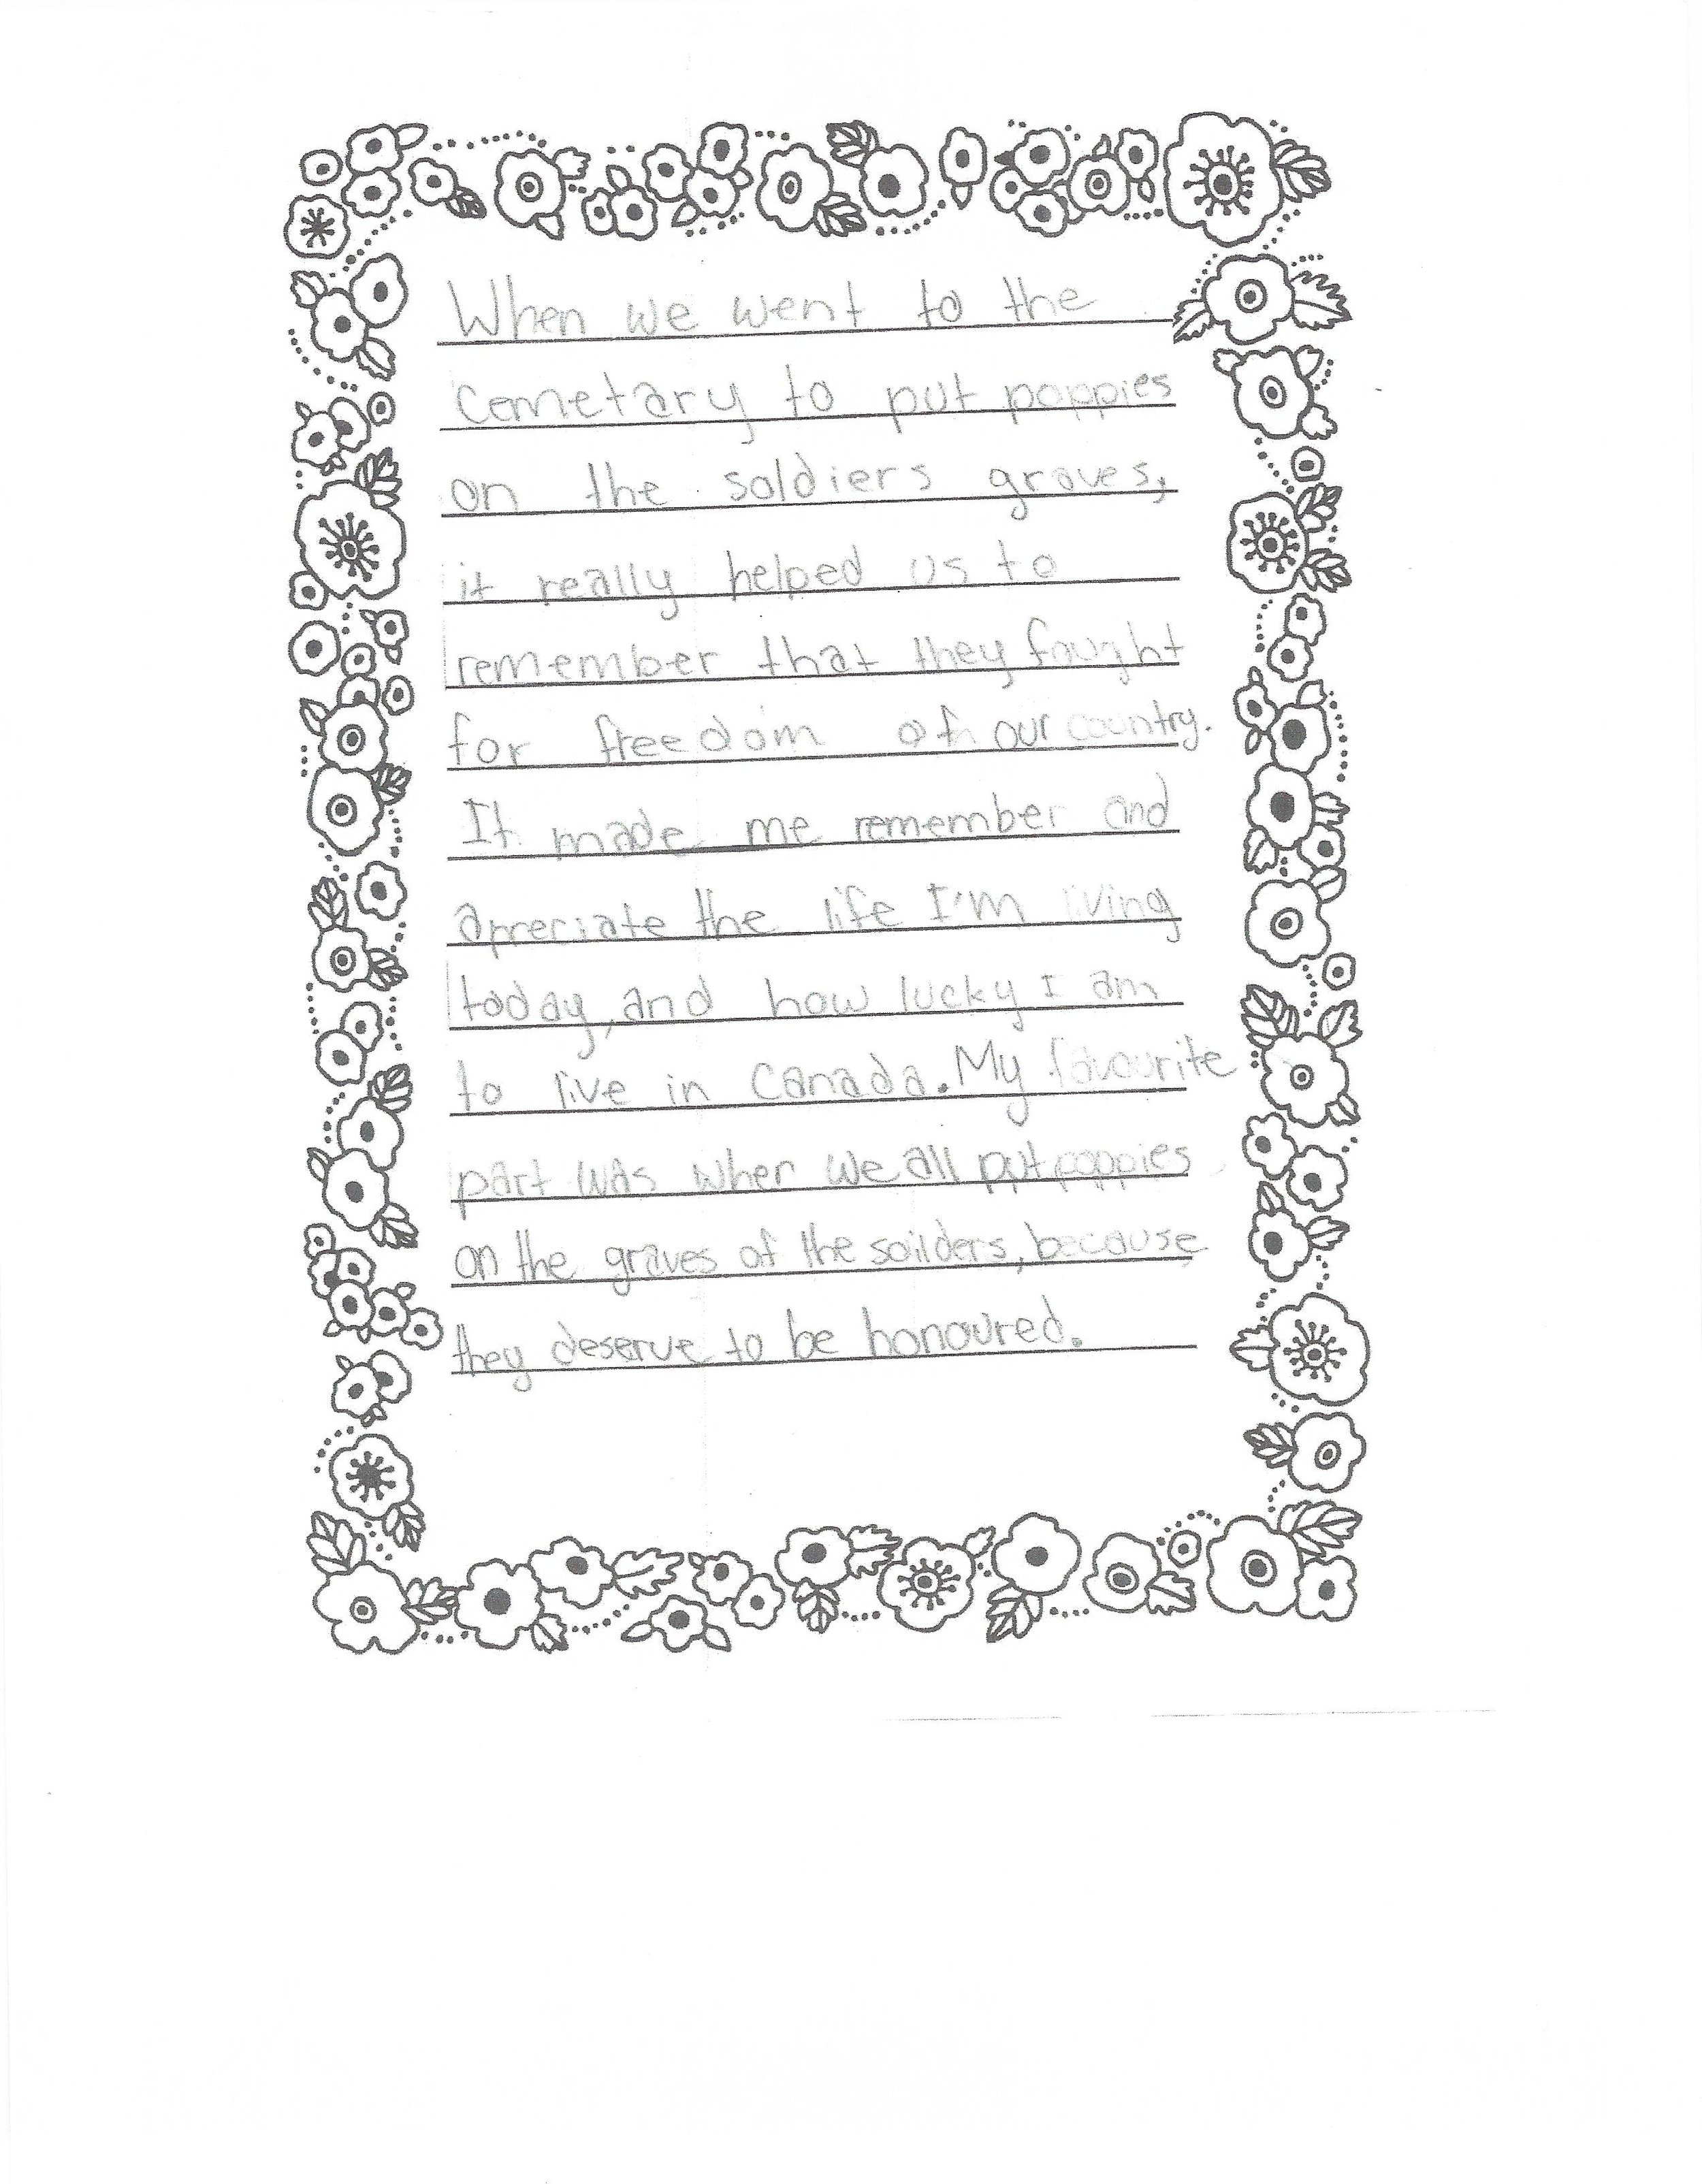 When we went to the
cemetary to put poppies
on the soldiers graves,
it really helped us to
remember that they fought
for freedom of our country.
It made me remember and
apreciate the life I'm living
today, and how lucky I am
to live in Canada. My favourite
part was when we all put poppies
on the graves of the soilders, because
they deserve to be honoured.